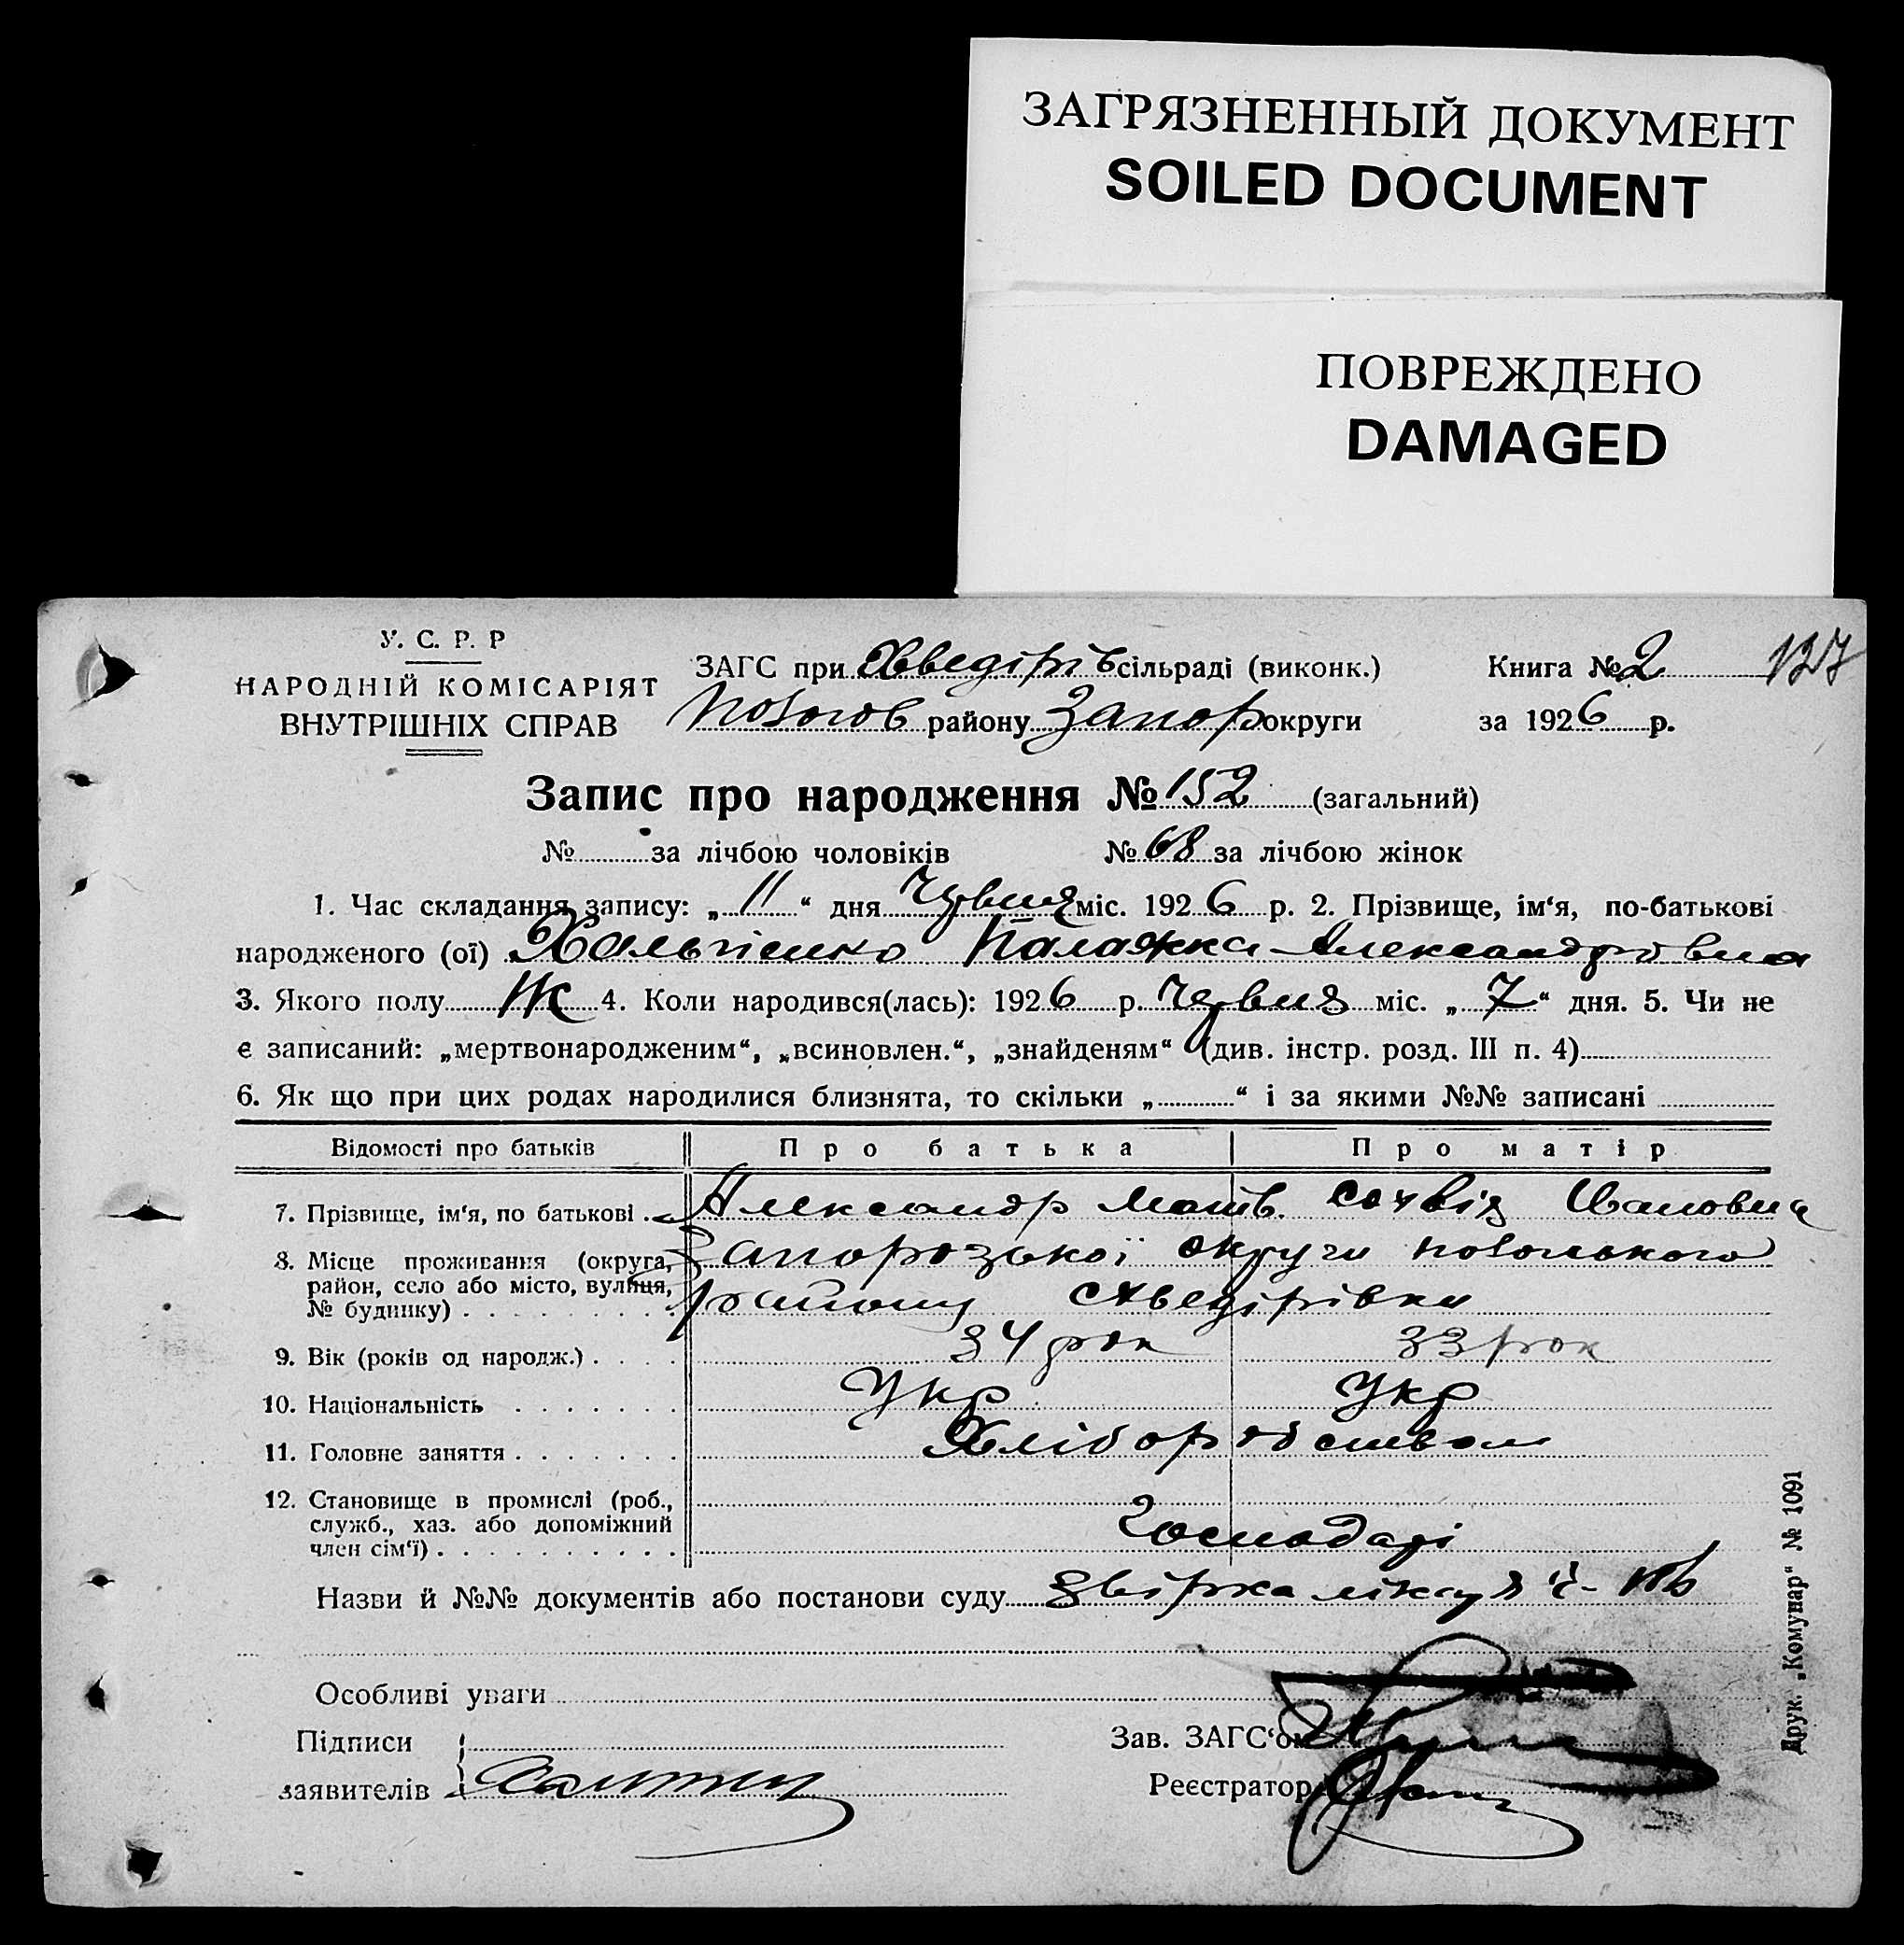 ЗАГРЯЗНЕННЫЙ ДОКУМЕНТ
SOILED DOCUMENT
ПОВРЕЖДЕНО
DAMAGED
У. С. Р. Р
НАРОДНІЙ КОМІСАРІЯТ
ВНУТРІШНІХ СПРАВ
ЗАГС при Хведірів сільраді (виконк.) Книга № 2 127
району Запор округи за 1926 р.
Запис про народження № 152 (загальний)
№ за лічбою чоловіків № 68 за лічбою жінок
1. Час складання запису: „11“ дня Червня міс. 1926 р. 2. Прізвище, ім‘я, по-батькові
народженого (ої) Палажка Александровна
3. Якого полу Ж 4. Коли народився(лась): 1926 р. Червня міс. „7“ дня. 5. Чи не
є записаний: „мертвонародженим“, „всиновлен.“, „знайденям“ (див. інстр. розд. III п. 4)
6. Як що при цих родах народилися близнята, то скільки „ “ і за якими №№ записані
Відомості про батьків Про батька Про матір
7. Прізвище, ім‘я, по батькові Александр Матв. Ивановна
8. Місце проживання (округа, Запорозької округи
район, село або місто, вулиця, району Хведірівка
№ будинку)
9. Вік (років од народж.) 34 рок 33 рок
10. Національність Укр Укр
11. Головне заняття Хліборобством
12. Становище в промислі (роб.,
служб., хаз. або допоміжний
член сім‘ї) Господарі
Назви й №№ документів або постанови суду
Особливі уваги
Підписи Зав. ЗАГС‘ом
заявителів Реєстратор
Друк. „Комунар“ № 1091